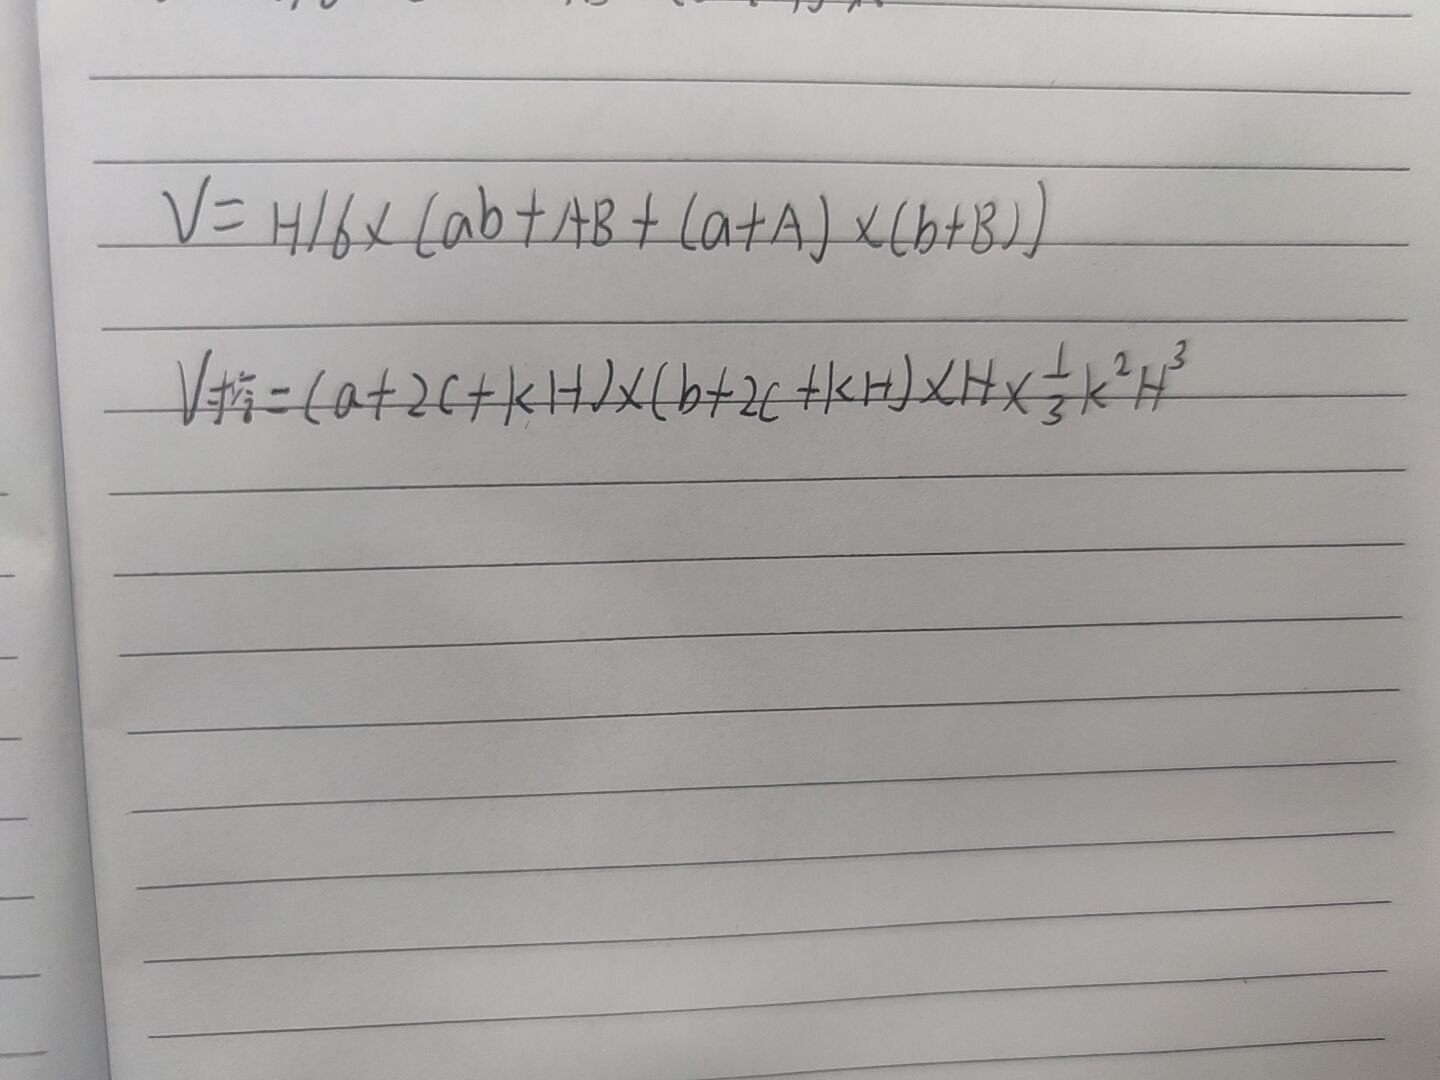 V=H/6×(ab+AB+(a+A)×(b+B))
V挖=(a+2C+kH)×(b+2C+kH)×H×\frac{1}{3}k²H³